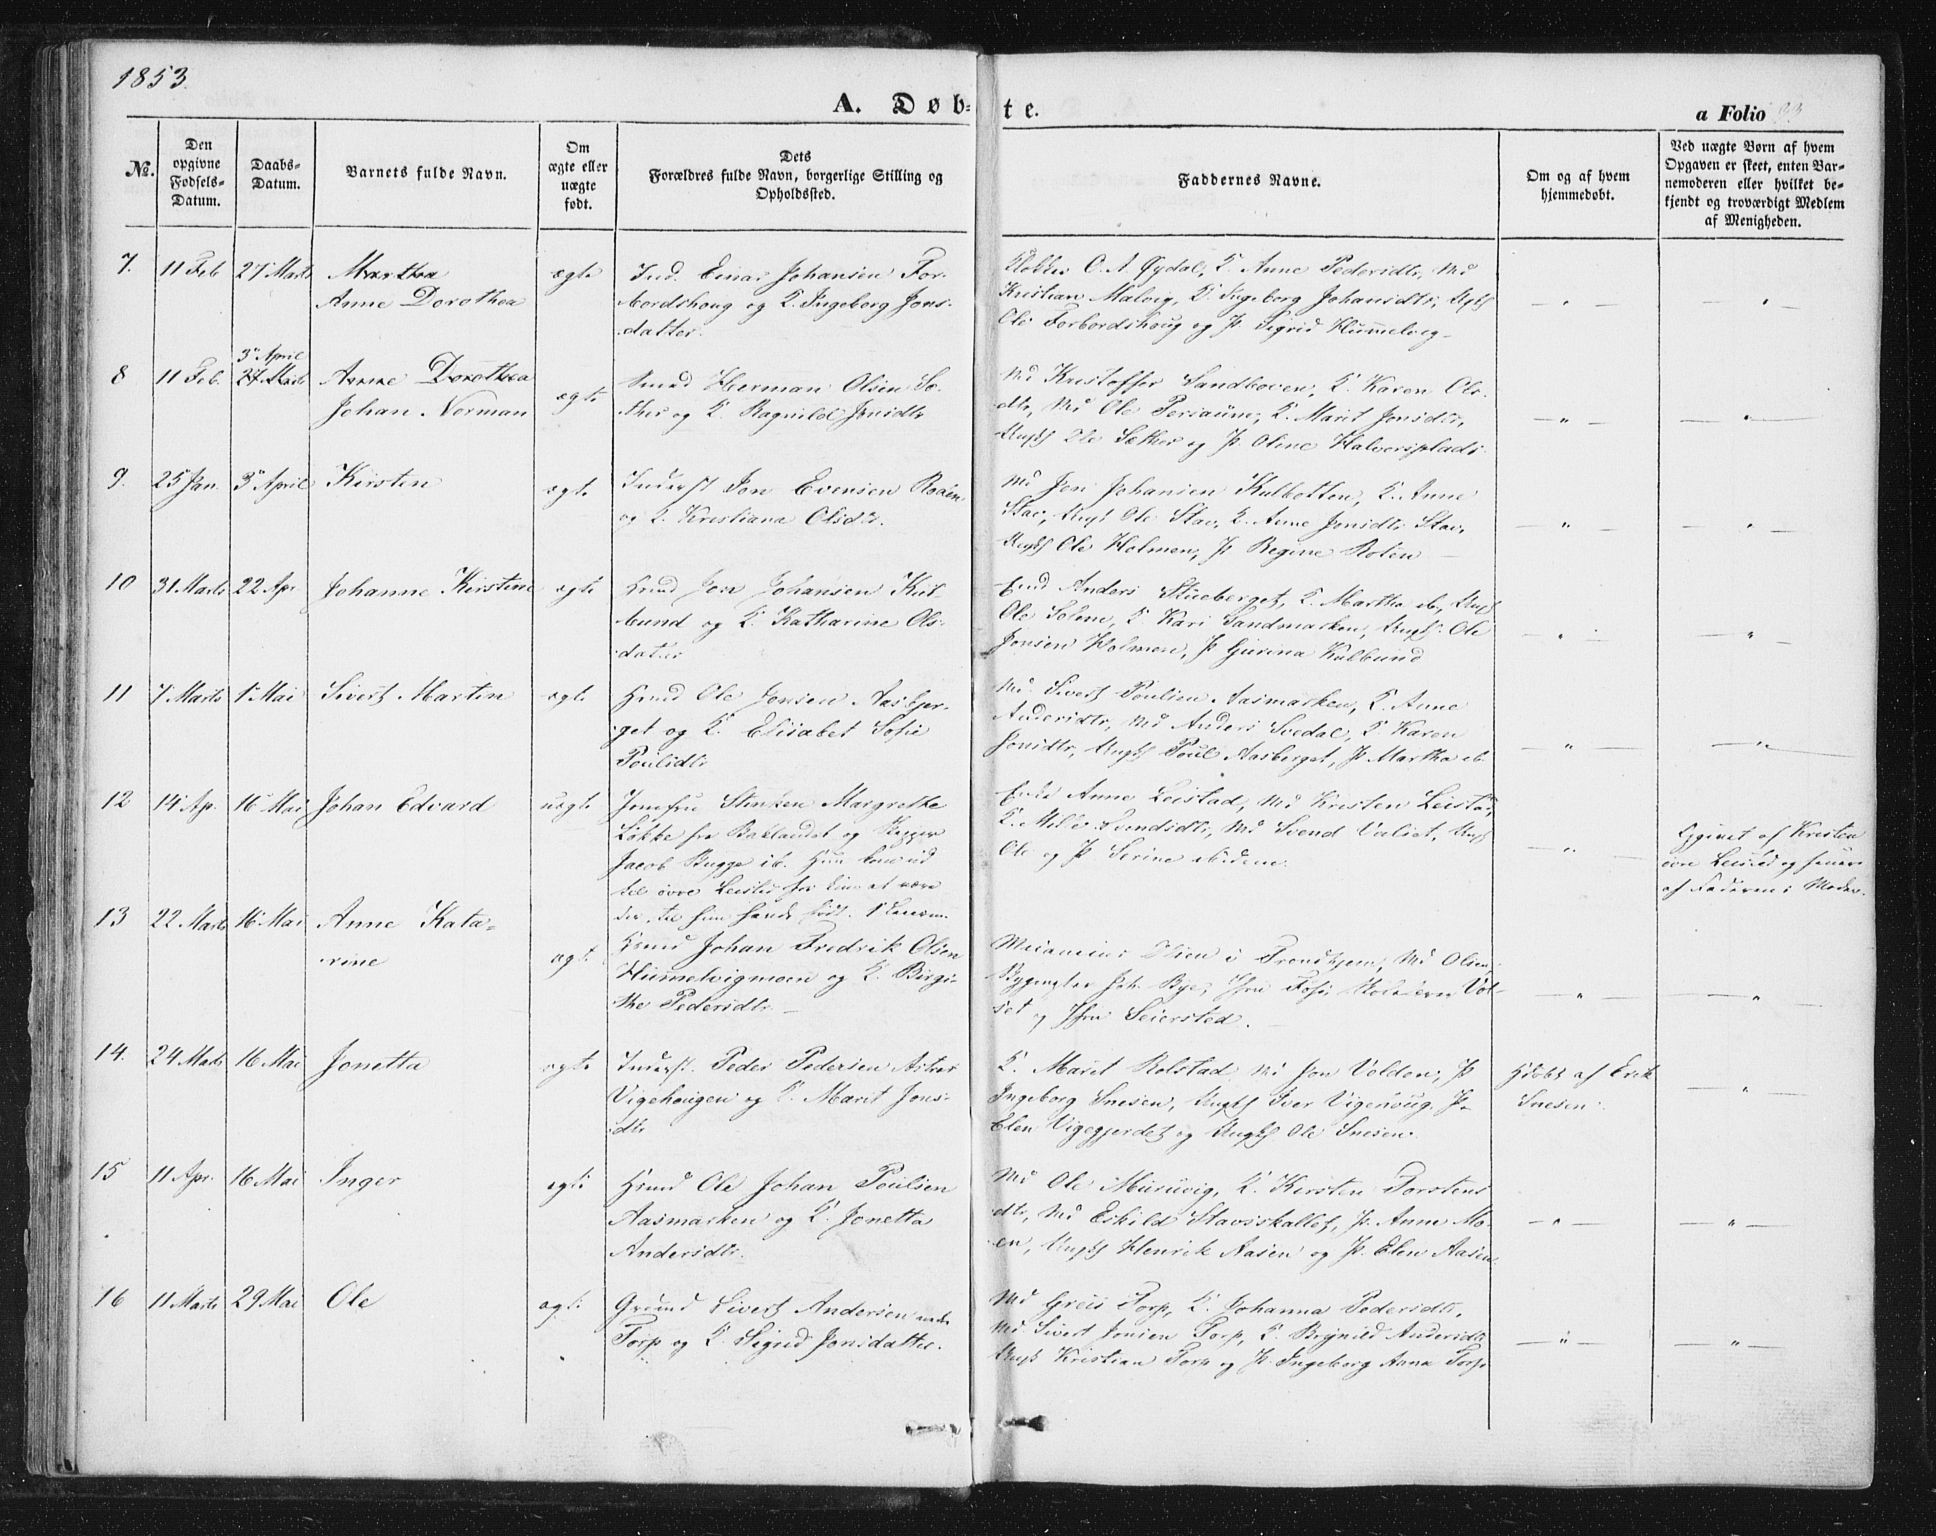 1853.
A. Døb-
te.
a Folio 33
No.
Den opgivne Fødsels-Datum.
Daabs-Datum.
Barnets fulde Navn.
Om ægte eller uægte født.
Dets Forældres fulde Navn, borgerlige Stilling og Opholdssted.
Faddernes Navne.
Om og af hvem hjemmedøbt.
Ved uægte Børn af hvem Opgaven er skeet, enten Barnemoderen eller hvilket bekjendt og troværdigt Medlem af Menigheden.
7. 11 Feb 27 Marts Marthea
Anne Dorothea
ægte
Ind. Einar Johansen For-
bordshoug og K. Ingeborg Jons-
datter.
Klokker O. A. Øydal, K. Anne Pedersdtr, Md
Kristian Malvig, K. Ingeborg Johansdtr, Ungk
Ole Forbordshoug og P. Sigrid Hummelvig
8 11 Feb. 27 Marts 3 April Anne Dorothea
Johan Norman
ægte
Smed Herman Olsen Sæ-
ther og K. Ragnild Jonsdtr
Md Kristoffer Sandboven, K. Karen Ols-
dtr, Md Ole Teriaune, K. Marit Jonsdtr,
Ungk Ole Sæther og P. Oline Halvorsplads
9. 25 Jan. 3 April Kirsten
ægte
Inderst Jon Evensen Roden
og K. Kristiana Olsdtr.
Md Jon Johansen Kulbotten, K. Anne
Stav, Ungk Ole Stav, K. Anne Jonsdtr Stav,
Ungk Ole Holmen, P. Regine Rolen
10 31 Marts 22 Apr Johanne Kirstine
ægte
Hmnd Jon Johansen Kul-
bund og K. Katharine Ols-
datter
Anders Stueberget, K. Martha ib, Ungk
Ole Solem, K. Kari Sandmarken, Ungk Ole
Jonsen Holmen, P. Gurina Kulbund
11 7 Marts 1 Mai Sivert Martin
ægte
Hmnd Ole Jonsen Aasber-
get og K. Elisabet Sofie
Poulsdtr
Md. Sivert Poulsen Aasmarken, K. Anne
Andersdtr, Md Anders Svedal, K Karen
Jonsdtr, Ungk Poul Aasberget, P. Martha ib
12 14 Ap. 16 Mai Johan Edvard
uægte
Jomfru Margrethe
Løkke fra Baklandet og
Jacob Bugge ib. Hun kom ud
til øvre Leistad for
Enke Anne Leistad, Md Kristen Leistad,
K. Svendsdtr, Md Svend Valset, Ungk
Ole og P. Serine ibidem.
Opgivet af Kristen
øvre Leistad og senere
af Faderen i Moder.
13 22 Marts 16 Mai Anne Kata-
rine
ægte
Hmnd Johan Fredrik Olsen
Hummelvigmoen og K. Birgi-
the Pedersdtr.
Olsen i Trondhjem, Md Olsen,
Joh. Bye,
og Seiersted.
14. 24 Marts 16 Mai Jonetta
ægte
Inderst. Peder Pedersen
Vigehougen og K. Marit Jons-
dtr
K. Marit Rolstad Md Jon Volden, P
Ingeborg Snesen, Ungk Iver Vigehoug, P.
Elen Vigegjerdet og Ungk Ole Snesen.
Hdøbt af Erik
Snesen.
15 11 Apr. 16 Mai Inger
ægte
Hmnd Ole Johan Poulsen
Aasmarken og K. Jonetta
Andersdtr.
Md Ole Muruvig, K. Kirsten Torstens
dtr, Md Eskild Stavsskallet, P. Anne Mo-
en, Ungk Henrik Aasen og P. Elen Aasen
16 11 Marts 29 Mai Ole
ægte
Grdmnd Sivert Andersen nedre
Torp og K. Sigrid Jonsdatter.
Md Greis Torp, K. Johanna Pedersdtr,
Md. Sivert Jonsen Torp, K. Brynild Andersdtr
Ungk Kristian Torp og P. Ingeborg Anna Torp